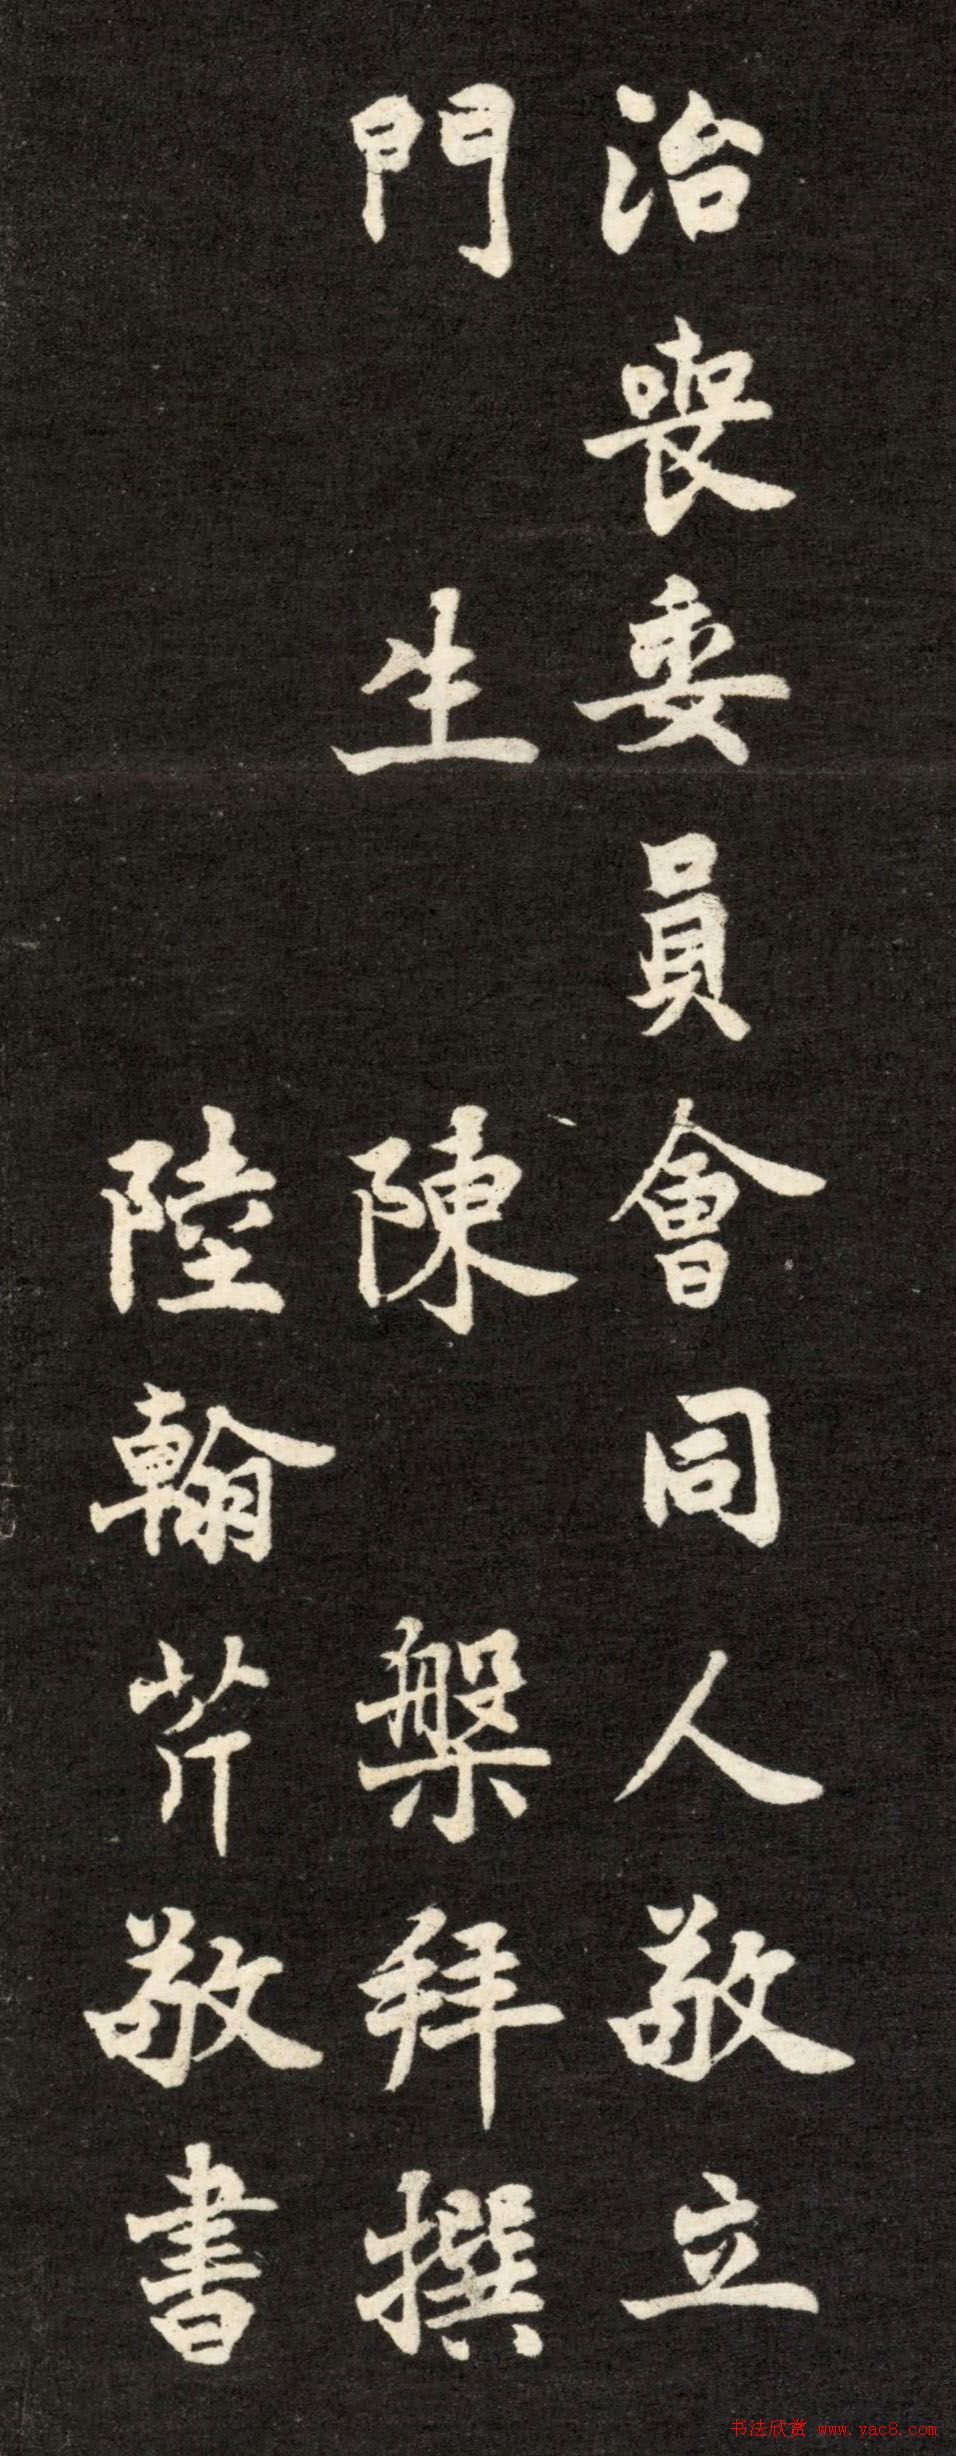 治喪委員會同人敬立
門生陳槃拜撰
陸翰芹敬書
书法欣赏 www.yac8.com